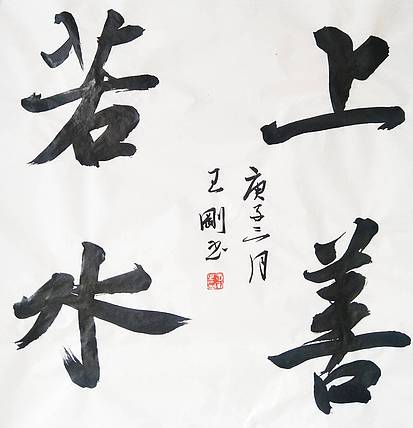 上善
若水
庚子三月
王刚书